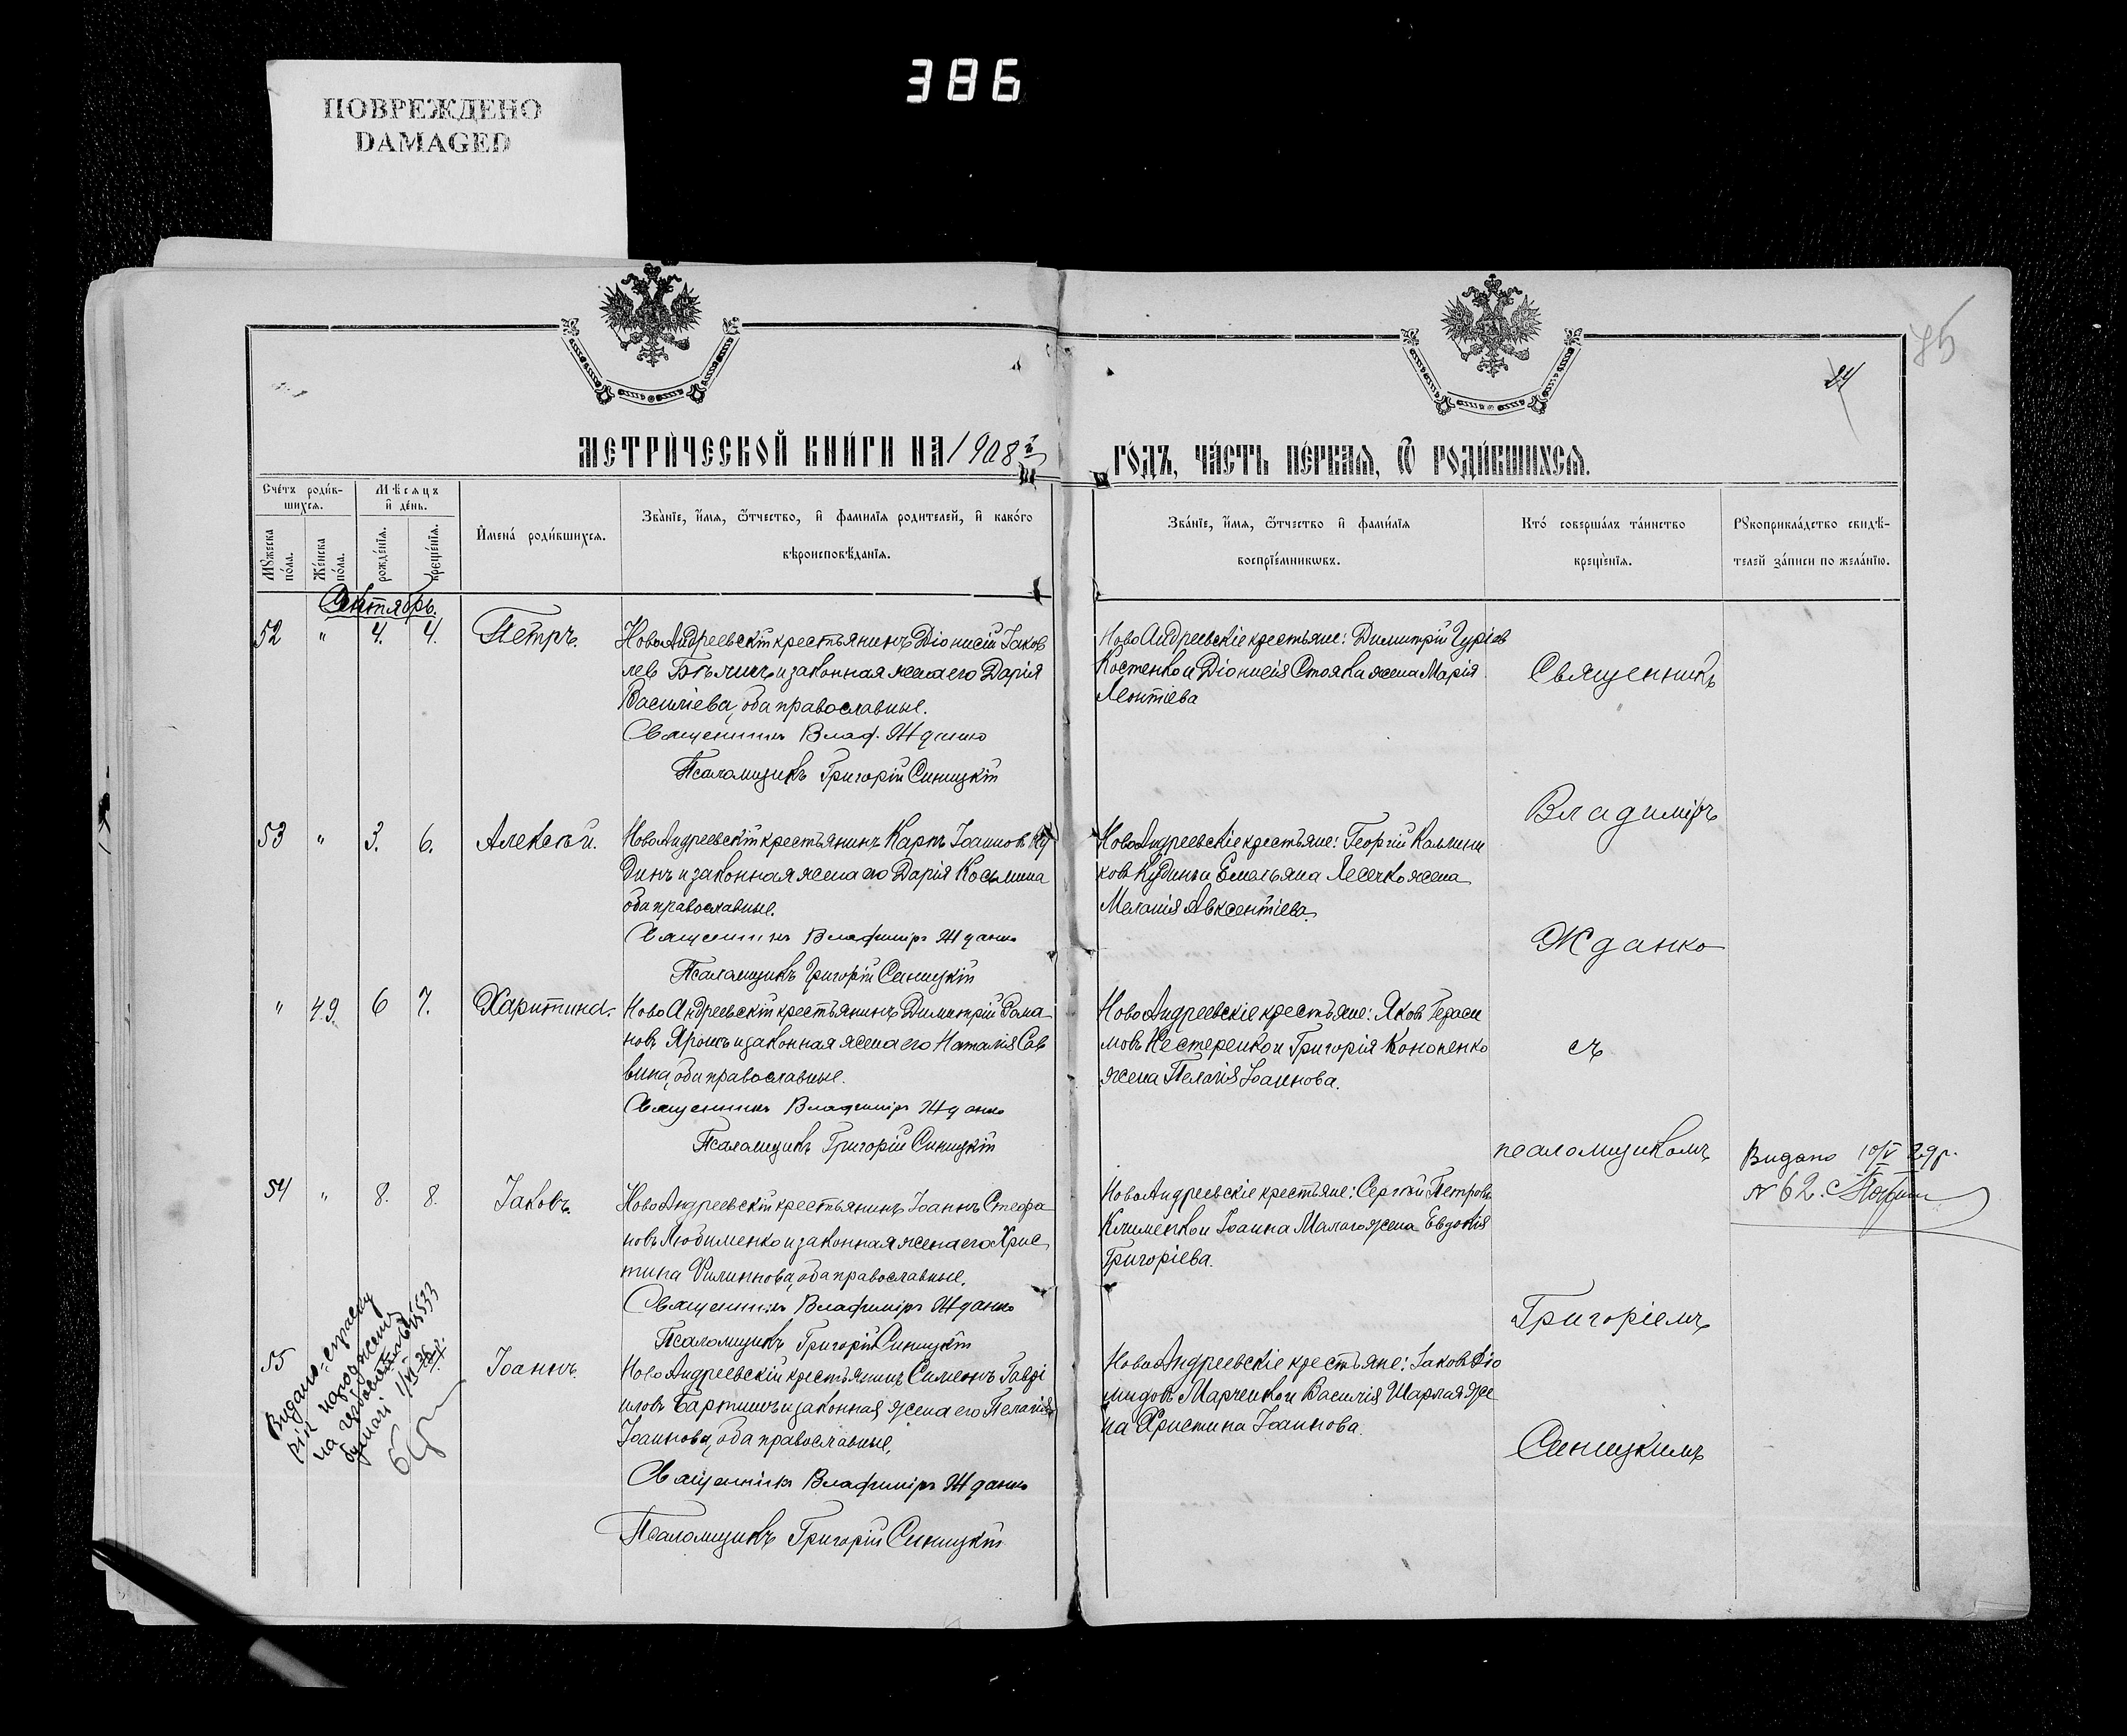 386
ПОВРЕЖДЕНО
DAMAGED
85
МЕТРИЧЕСКОЙ КНИГИ НА 1908й ГОДЪ, ЧАСТЬ ПЕРВАЯ, Ѿ РОДИВШИХСЯ.
Счетъ родив-
шихся.
Мѣсяцъ
и день.
Мужеска
пола.
Женска
пола.
рожденія.
крещенія.
Имена родившихся.
Званіе, имя, ѿчество, и фамилія родителей, и какого
вѣроисповѣданія.
Званіе, имя, ѿчество и фамилія
воспріемникѡвъ.
Кто совершалъ таинство
крещенія.
Рукоприкладство свидѣ-
телей записи по желанію.
52 " 4. 4. Петръ.
НовоАндреевскій крестьянинъ Діонисій Іаков
лев и законная жена его Дарія
Василіева, оба православные.
Священникъ Влад. Жданко
Псаломщикъ Григорій Синицкій
НовоАндреевскіе крестьяне: Димитрій Гуріев
Костенко и Діонисія Стояка жена Марія
Леонтіева
53 " 3. 6. Алексѣй.
НовоАндреевскій крестьянинъ Карпъ Іоаннов Ку
динъ и законная жена его Дарія Косьмина
оба православные.
Священникъ Владимиръ Жданко
Псаломщикъ Григорій Синицкій
НовоАндреевскіе крестьяне: Георгій Каллини
ковъ Кудинъ и Емельяна жена
Меланія Авксентіева.
" 49. 6 7. Харитина.
НовоАндреевскій крестьянинъ Димитрій Рома
новъ Ярошъ и законная жена его Наталія Сав
вина, оба православные.
Священникъ Владимиръ Жданко
Псаломщикъ Григорій Синицкій
НовоАндреевскіе крестьяне: Яковъ Гераси
мовъ Нестеренко и Григорія Кононенко
жена Пелагія Іоаннова.
54 " 8. 8. Іаковъ.
НовоАндреевскій крестьянинъ Іоаннъ Стефа
новъ Любименко и законная жена его Хрис
тина Филиппова, оба православные.
Священникъ Владимиръ Жданко
Псаломщикъ Григорій Синицкій
НовоАндреевскіе крестьяне: Сергѣй Петровъ
Клименко и Іоанна Малаго жена Евдокія
Григоріева.
55 Іоаннъ.
НовоАндреевскій крестьянинъ Симеонъ Гаврі
иловъ и законная жена его Пелагія
Іоаннова, оба православные.
Священникъ Владимиръ Жданко
Псаломщикъ Григорій Синицкій
НовоАндреевскіе крестьяне: Іаковъ Діо
мидовъ Марченко и Василія Шарлая же
на Христина Іоаннова.
Священникъ
Владиміръ
Жданко
съ
псаломщикомъ
Григоріемъ
Синицкимъ
Видано 10/V 29р.
№ 62.